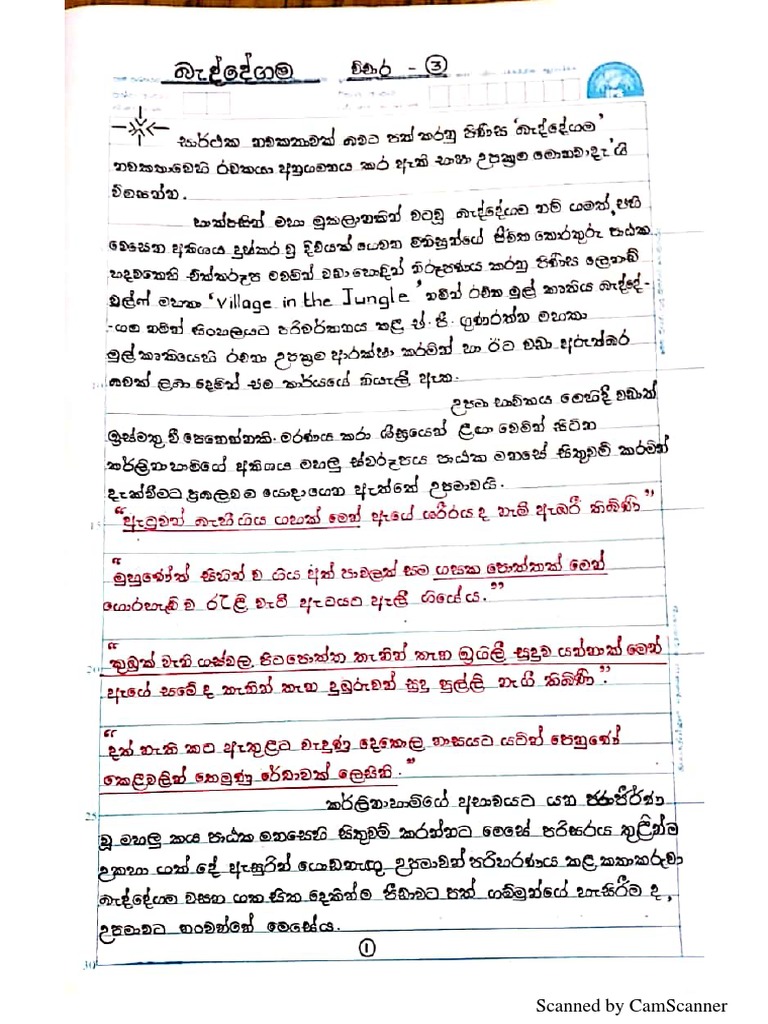 බැද්දේගම විචාර - ③
සාර්ථක නවකතාවක් බවට පත් කරනු පිණිස 'බැද්දේගම'
නවකතාවෙහි රචකයා අනුගමනය කර ඇති භාෂා උපක්‍රම මොනවාදැ'යි
විමසන්න.
හාත්පසින් මහා මූකලානකින් වටවූ බැද්දේගම නම් ගමත්, එහි
වෙසෙන අතිශය දුෂ්කර වූ දිවියක් ගෙවන මිනිසුන්ගේ ජීවිත තොරතුරු පාඨක
හදවතෙහි චිත්තරූප මවමින් වඩා හොඳින් නිරූපණය කරනු පිණිස ලෙනාඩ්
වුල්ෆ් මහතා 'Village in the Jungle' නමින් රචිත මුල් කෘතිය බැද්දේ-
-ගම නමින් සිංහලයට පරිවර්තනය කළ ඒ. පී. ගුණරත්න මහතා
මුල් කෘතියෙහි රචනා උපක්‍රම ආරක්ෂා කරමින් හා ඊට වඩා අරුත්බර
බවක් ලබා දෙමින් එම කාර්යයේ නියැලී ඇත.
උපමා භාවිතය මෙහිදී වඩාත්
ඉස්මතු වී පෙනෙන්නකි. මරණය කරා ශීඝ්‍රයෙන් ළඟා වෙමින් සිටින
කර්ලිනාහාමිගේ අතිශය මහලු ස්වරූපය පාඨක මනසේ සිතුවම් කරමින්
දැක්වීමට ප්‍රබලවම යොදාගෙන ඇත්තේ උපමාවයි.
"ඇටුවන් බැහී ගිය ගහක් මෙන් ඇගේ ශරීරය ද නැමී ඇඹරී තිබිණි"
"මුහුණේත් සිහින් ව ගිය අත් පාවලත් සම ගසක පොත්තක් මෙන්
ගොරහැඬි ව රැළි වැටී ඇටයට ඇලී ගියේ ය."
"කුඹුක් වැනි ගස්වල පිටපොත්ත තැනින් තැන බුයිලී සුදුව යන්නාක් මෙන්
ඇගේ සමේ ද තැනින් තැන දුඹුරුවන් සුදු පුල්ලි නැගී තිබිණි."
"දත් නැති කට ඇතුළට වැදුණු දෙතොල නාසයට යටින් පෙනුණේ
කෙළවලින් තෙමුණු රේඛාවක් ලෙසිනි."
කර්ලිනාහාමිගේ අභාවයට යන ජරාජීර්ණ
වූ මහලු කය පාඨක මනසෙහි සිතුවම් කරන්නට මෙසේ පරිසරය තුළින්ම
උකහා ගත් දේ ඇසුරින් ගොඩනැගූ උපමාවන් පරිහරණය කළ කතාකරුවා
බැද්දේගම වසන ගත සිත දෙකින්ම පීඩාවට පත් ගම්මුන්ගේ හැසිරීම ද,
උපමාවට නංවන්නේ මෙසේය.
①
Scanned by CamScanner